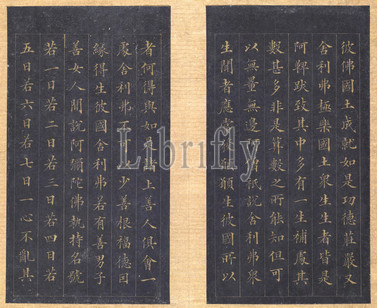 彼佛國土成就如是功德莊嚴又
舍利弗極樂國土衆生生者皆是
阿鞞跋致其中多有一生補處其
數甚多非是算數之所能知但可
以無量無邊 祇說舍利弗衆
生聞者應當 願生彼國所以
者何得與如 諸上善人俱會一
處舍利弗不 少善根福德因
緣得生彼國舍利弗若有善男子
善女人聞說阿彌陀佛執持名號
若一日若二日若三日若四日若
五日若六日若七日一心不亂其
Librifly